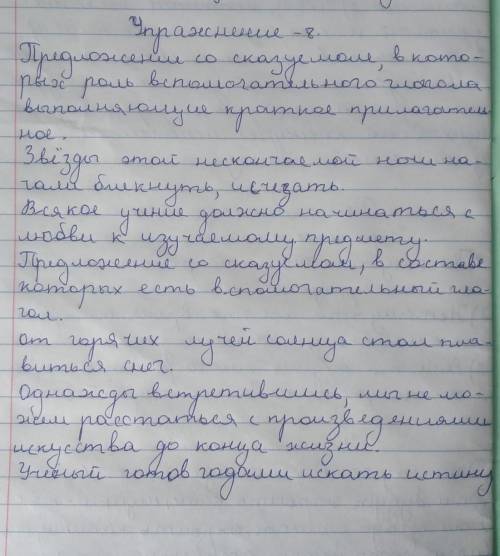 Упражнение -8.
Предложение со сказуемом, в кото-
рых роль вспомогательного глагола
выполняющие краткое прилагатель
ное.
Звёзды этой нескончаемой ночи на-
чали бликнуть, исчезать.
Всякое учение должно начинаться с
любви к изучаемому предмету.
Предложение со сказуемом, в составе
которых есть вспомогательный гла-
гол.
от горячих лучей солнца стал пла-
виться снег.
Однажды встретившись, мы не мо-
жем расстаться с произведениями
искусства до конца жизни.
Учёный готов годами искать истину